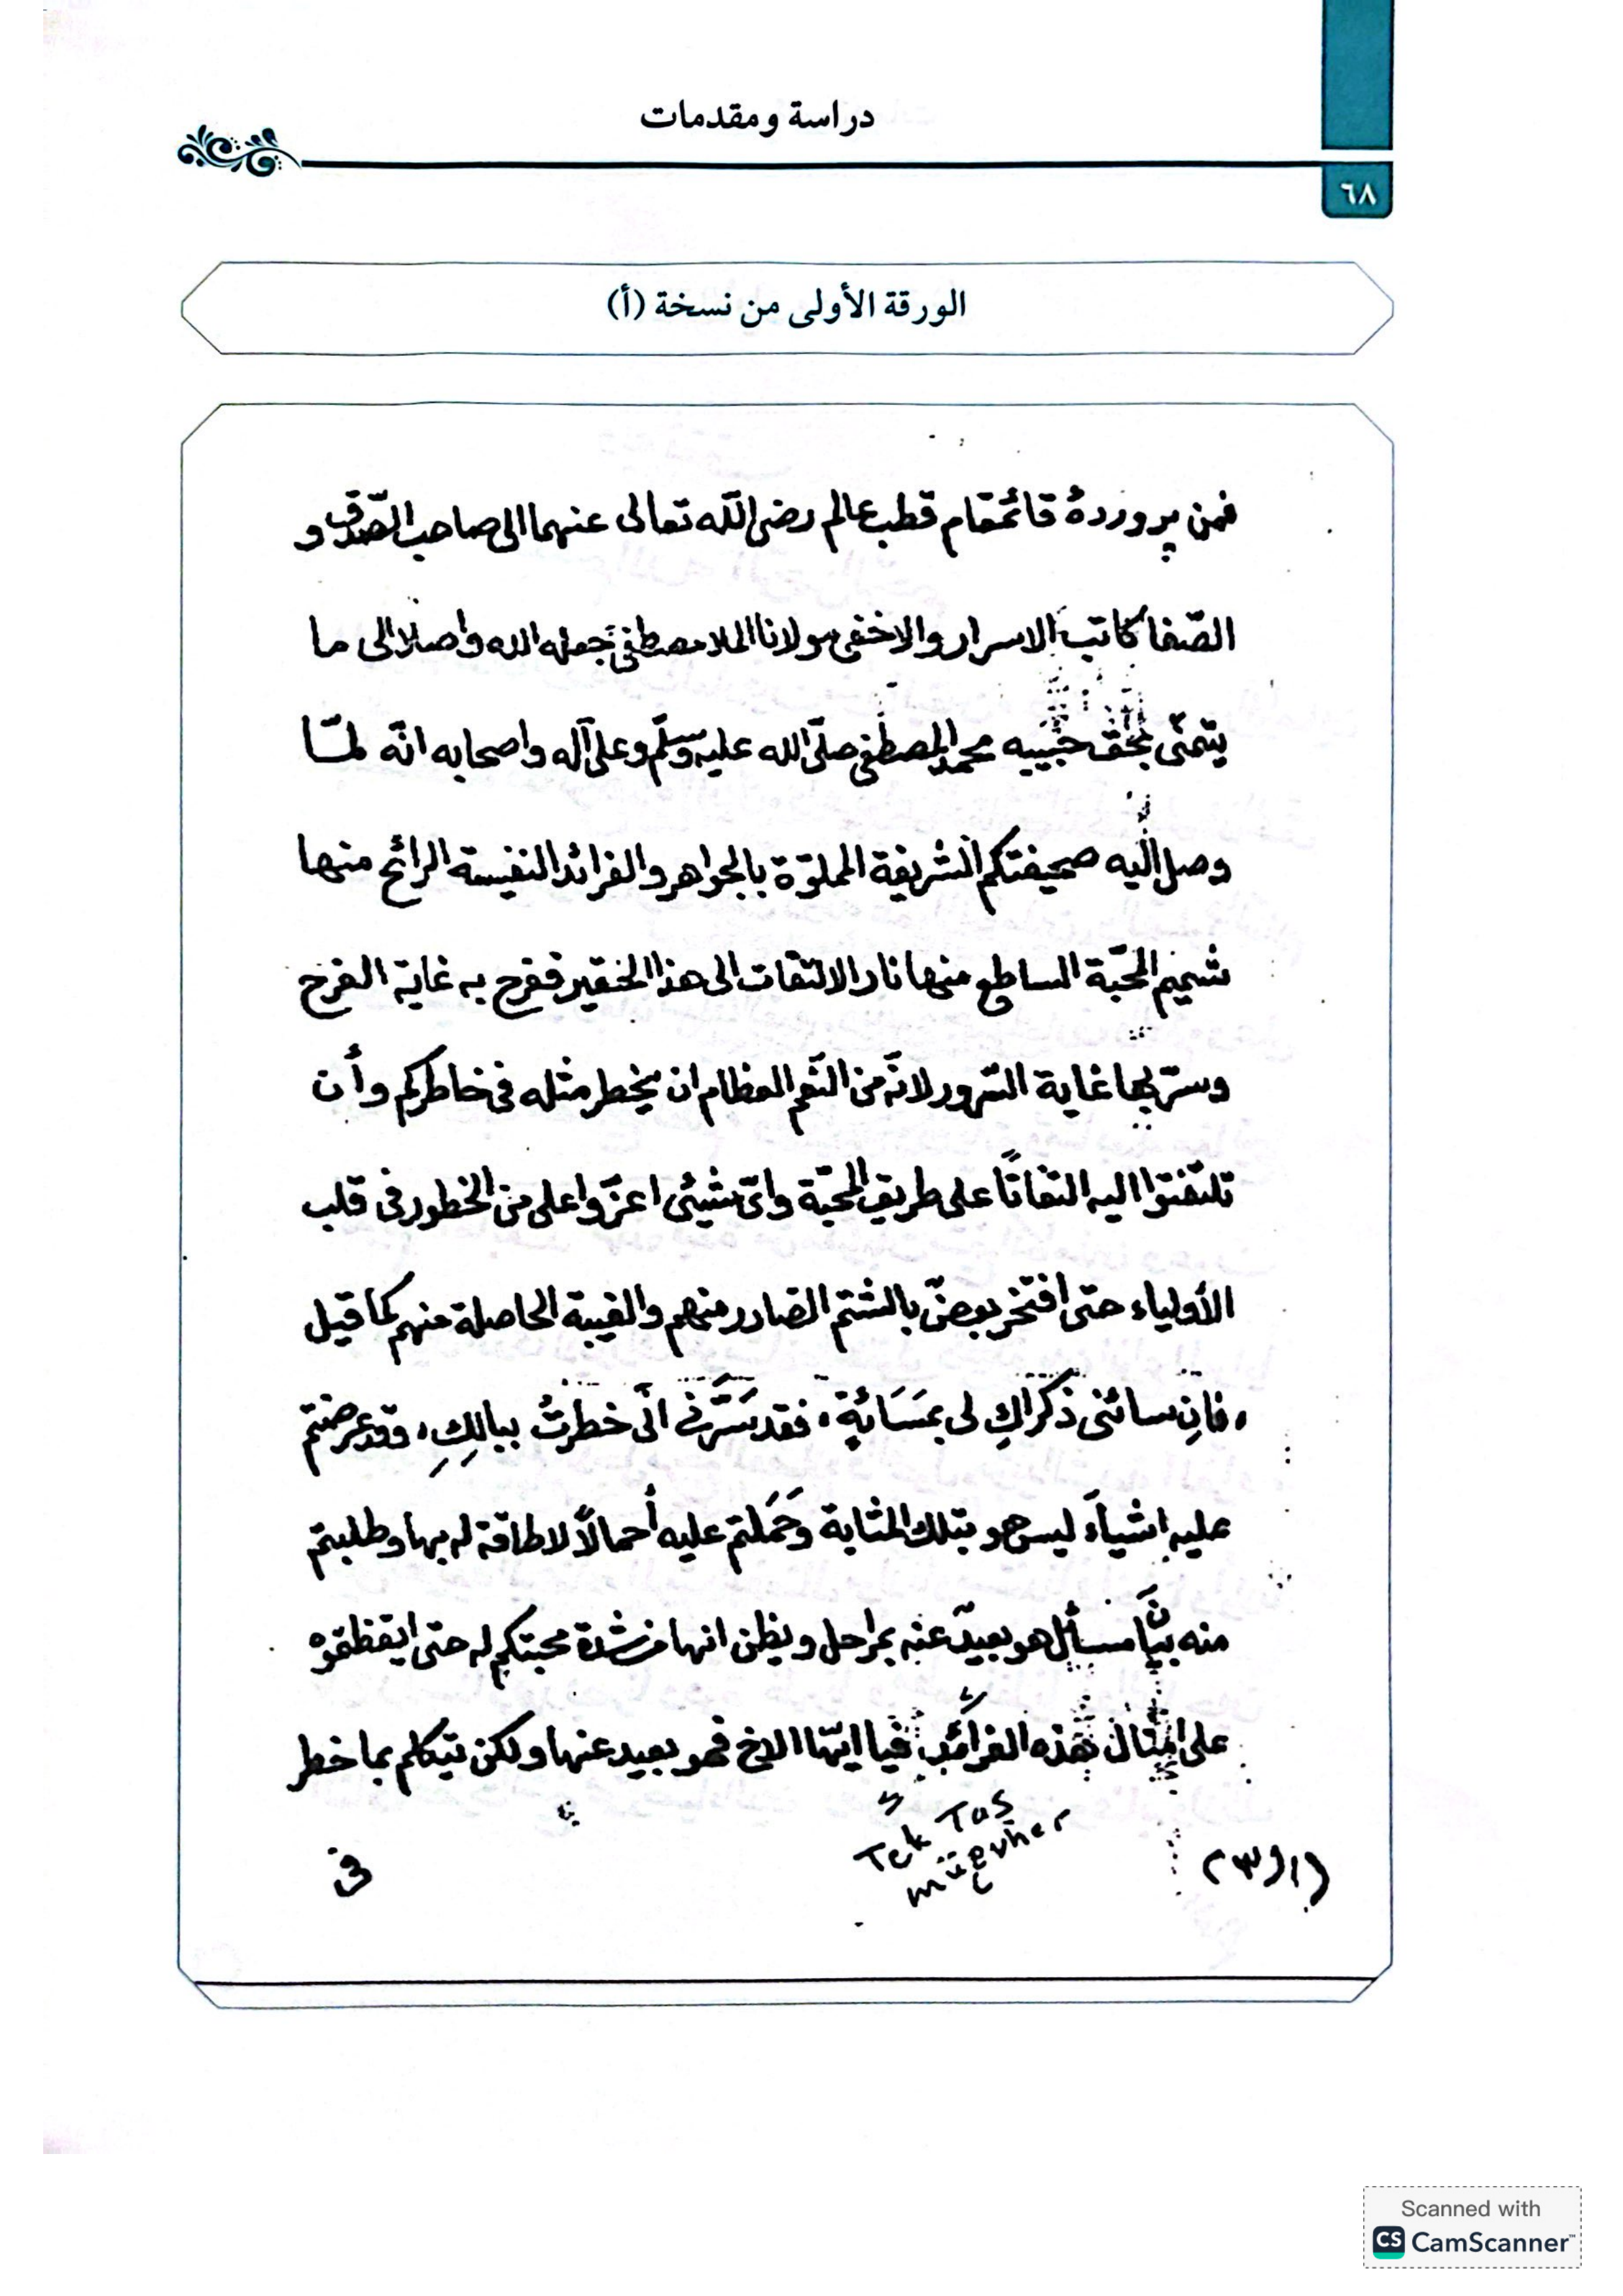 دراسة ومقدمات
٦٨
الورقة الأولى من نسخة (أ)
فمن پروردهٔ قائمقام قطب عالم رضى الله تعالى عنهما الى صاحب الصّدق و
الصّفا كاتب الاسرار والاخفى مولانا الملا مصطفى جعله الله واصلا الى ما
يتمنّى بحق حبيبه محمد المصطفى صلّى الله عليه وسلّم وعلى آله واصحابه انّه لمّا
وصل اليه صحيفتكم الشريفة المملوّة بالجواهر والفرائد النفيسة الرائح منها
شميم المحبّة الساطع منها نار الالتفات الى هذا الحقير ففرح به غاية الفرح
وسرّ بها غاية السّرور لانّه من النّعم العظام ان يخطر مثله فى خاطركم وأن
تلتفتوا اليه التفاتًا على طريق المحبّة واىّ شيئى اعزّ واعلى من الخطور فى قلب
الأولياء حتى افتخر بعضٌ بالشتم الصّادر منهم والغيبة الحاصلة منهم كما قيل
، فانِ سائنى ذكراكِ لى بمَسَائةٍ ، فقد سَرَّنى انّى خطرتُ ببالكِ ، وقد عرضتم
عليه اشياءَ ليس هو بتلك المثابة وحَمَلتم عليه أحمالاً لا طاقة له بها وطلبتم
منه بيانَ مسائل هو بعيدٌ عنه بمراحل ويظن انها من شدة محبتكم له حتى ايقظتموه
على امثال هذه الفرائد فيا ايّها الاخ فهو بعيد عنها ولكن يتكلم بما خطر
Tek Taş
mücevher
فى
Scanned with
CS CamScanner